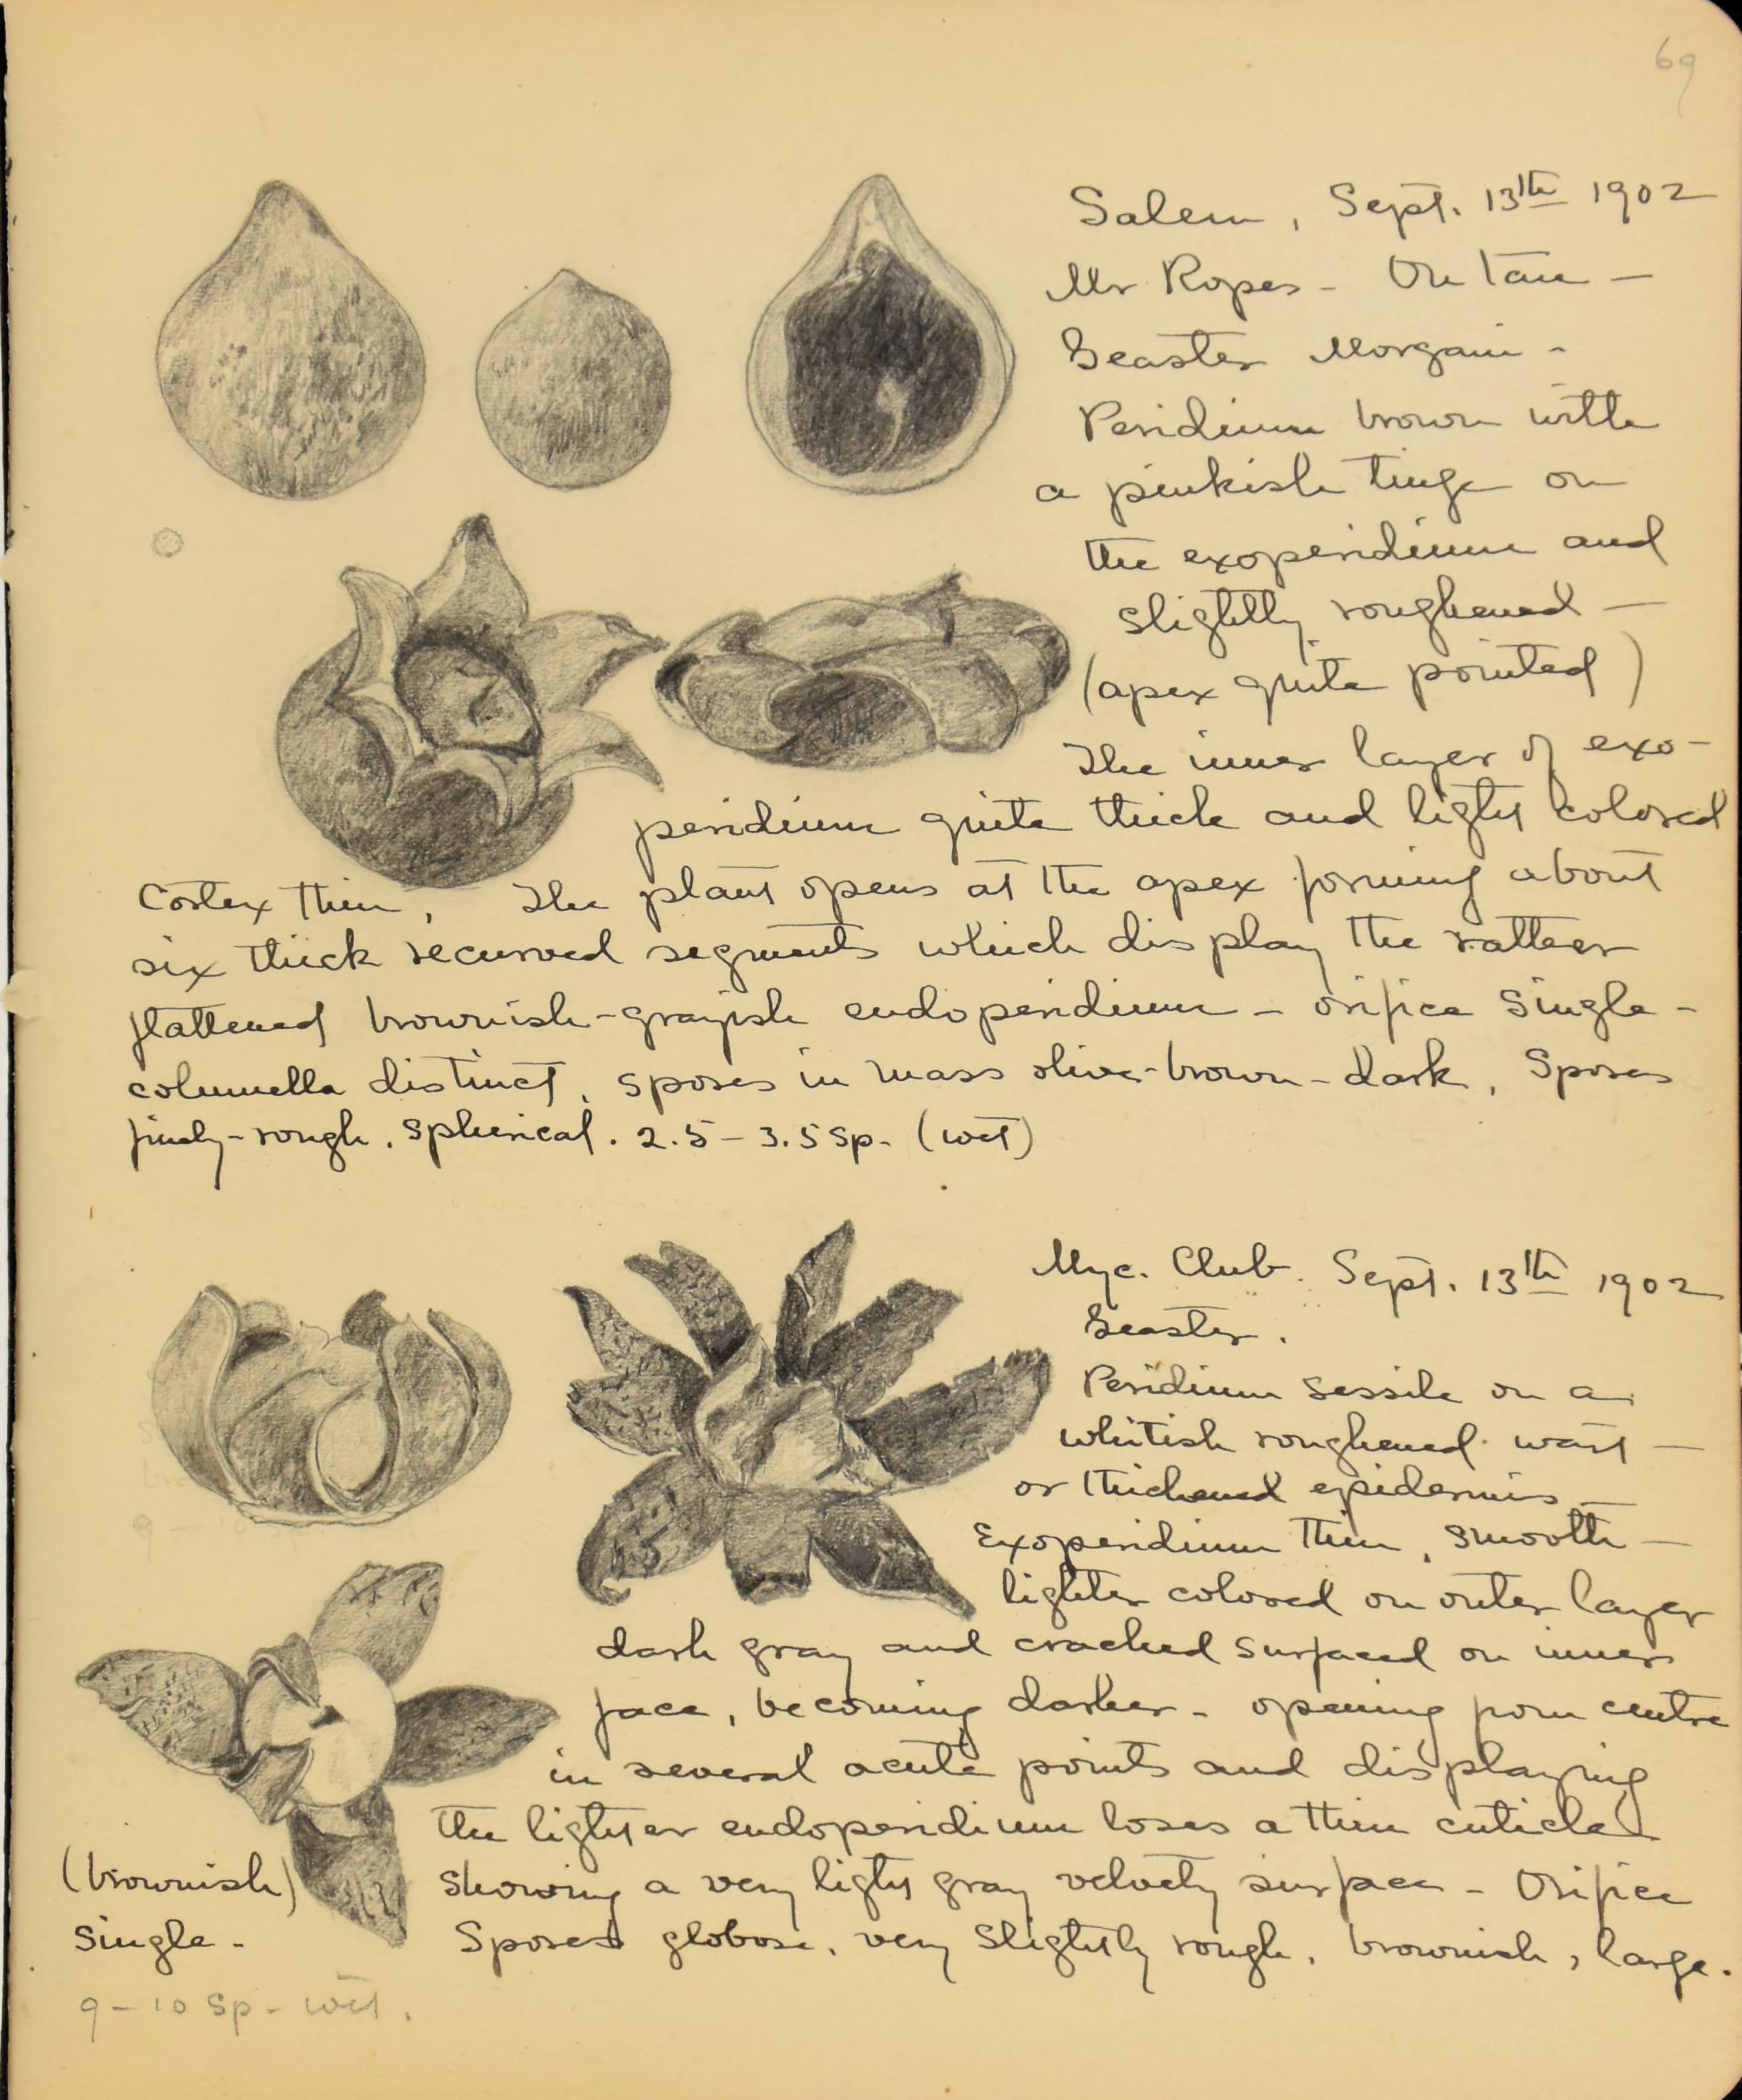 69
Salem, Sept. 13th 1902
Mr Ropes - On tan -
Geaster Morgani -
Peridium brown with
a pinkish tinge on
the exoperidium and
slightly roughened -
(apex quite pointed)
The inner layer of exo-
peridium quite thick and light colored
Cortex thin, The plant opens at the apex forming about
six thick recurved segments which display the rather
flattened brownish-grayish endoperidium - orifice single -
columella distinct, spores in mass olive-brown-dark, Spores
finely-rough. spherical. 2.5 - 3.5 sp. (wet)
Myc. Club. Sept. 13th 1902
Geaster.
Peridium sessile on a
whitish roughened wart -
or thickened epidermis -
Exoperidium thin, smooth -
lighter colored on outer layer
dark gray and cracked surfaced on inner
face, becoming darker - opening from centre
in several acute points and displaying
the lighter endoperidium loses a thin cuticle
(brownish) showing a very light gray velvety surface - Orifice
single - Spores globose, very slightly rough, brownish, large.
9-10 sp - wet.